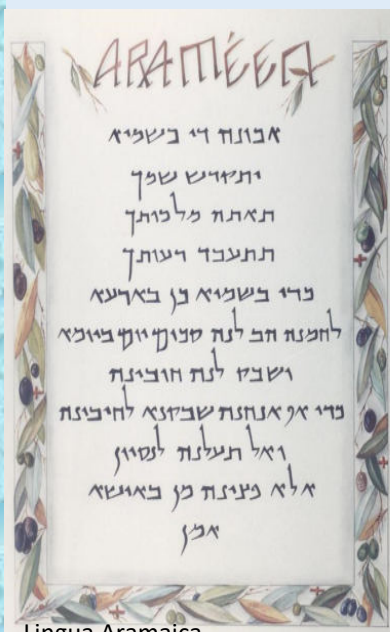 ARAMÉEN
אבונה די בשמיא
יתקדש שמך
תאתה מלכותך
תתעבד רעותך
כדי בשמיא כן בארעא
לחמנה הב לנה סכום יום ביומא
ושבק לנה חובינה
כדי אף אנחנה שבקנא לחיבינה
ואל תעלנה לנסיון
אלא פצינה מן באושא
אמן
Lingua Aramaica